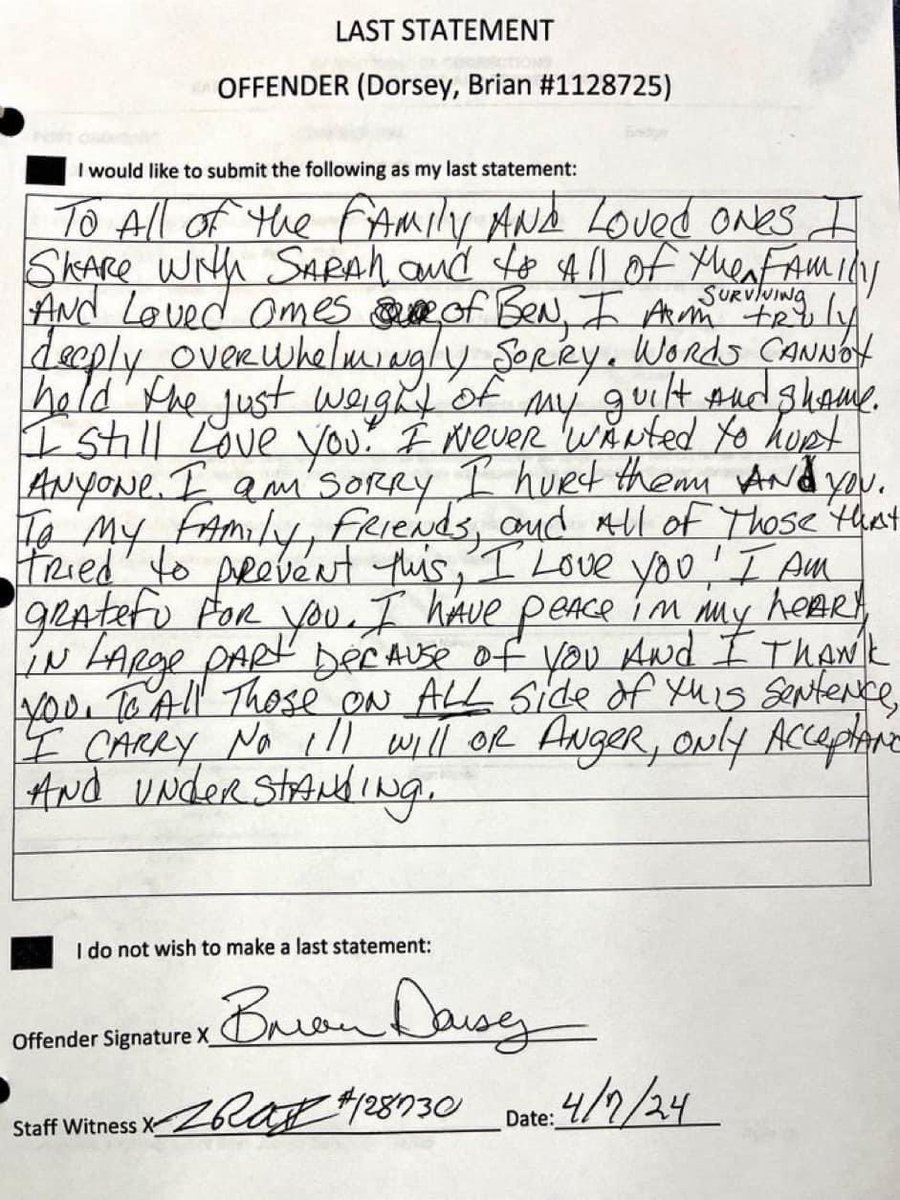 LAST STATEMENT
OFFENDER (Dorsey, Brian #1128725)
I would like to submit the following as my last statement:
To All of the FAMily AND Loved ones I
SHARE With SARAh and to All of the ^ FAMily
SURVIVING
AND Loved ones of BEN, I AM truly
deeply overwhelmingly SORRY. WORDS CANNOT
hold the just weight of my guilt and shame.
I still Love you! I NEVER WANTED to hurt
ANYONE. I am SORRY I hurt them ANd you.
To My FAMily, Friends, and All of Those that
Tried to prevent this, I Love you! I AM
gratefu FOR YOU. I HAVE peace in my heart,
IN LARge pART because of you AND I THANK
YOU. To All Those ON ALL side of this sentence,
I CARRY No ill will OR ANGER, only Acceptanc
AND understanding.
I do not wish to make a last statement:
Offender Signature X Brian Dorsey
Staff Witness X #128730 Date: 4/7/24